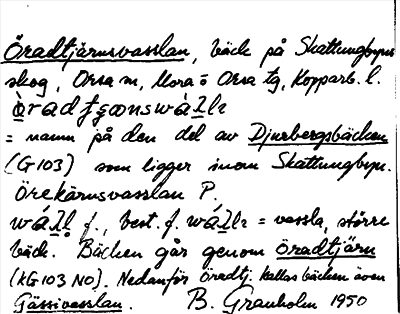 Öradtjärnsvasslan, bäck på Skattungbyns
skog, Orsa sn, Mora o Orsa tg, Kopparb. l.
= namn på den del av Djurbergsbäcken
(G103) som ligger inom Skattungbyn.
Örekärnsvasslan P.
f., best. f. = vassla, större
bäck. Bäcken går genom Öradtjärn
(KG103 NO). Nedanför Öradtj. kallas bäcken även
Gässivasslan. B. Granholm 1950